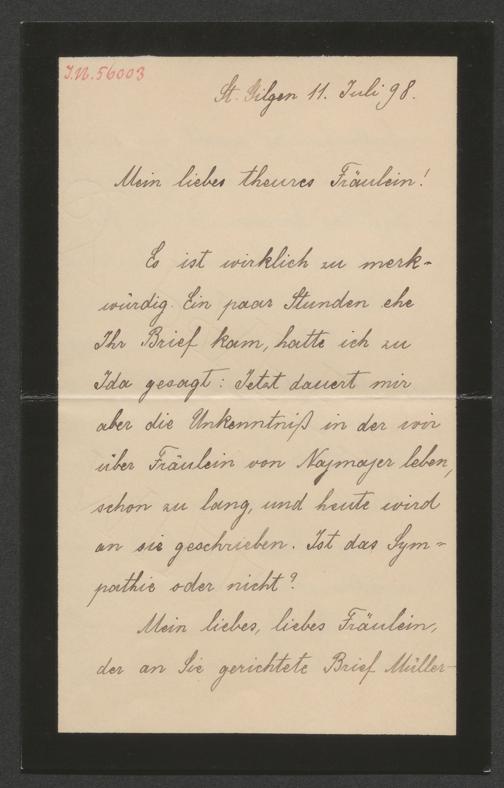 I.N. 56003
St. Gilgen 11. Juli 98.
Mein liebes theures Fräulein!
Es ist wirklich zu merk-
würdig. Ein paar Stunden ehe
Ihr Brief kam, hatte ich zu
Ida gesagt: Jetzt dauert mir
aber die Unkenntniß in der wir
über Fräulein von Najmajer leben,
schon zu lang, und heute wird
an sie geschrieben. Ist das Sym-
pathie oder nicht?
Mein liebes, liebes Fräulein,
der an Sie gerichtete Brief Müller-